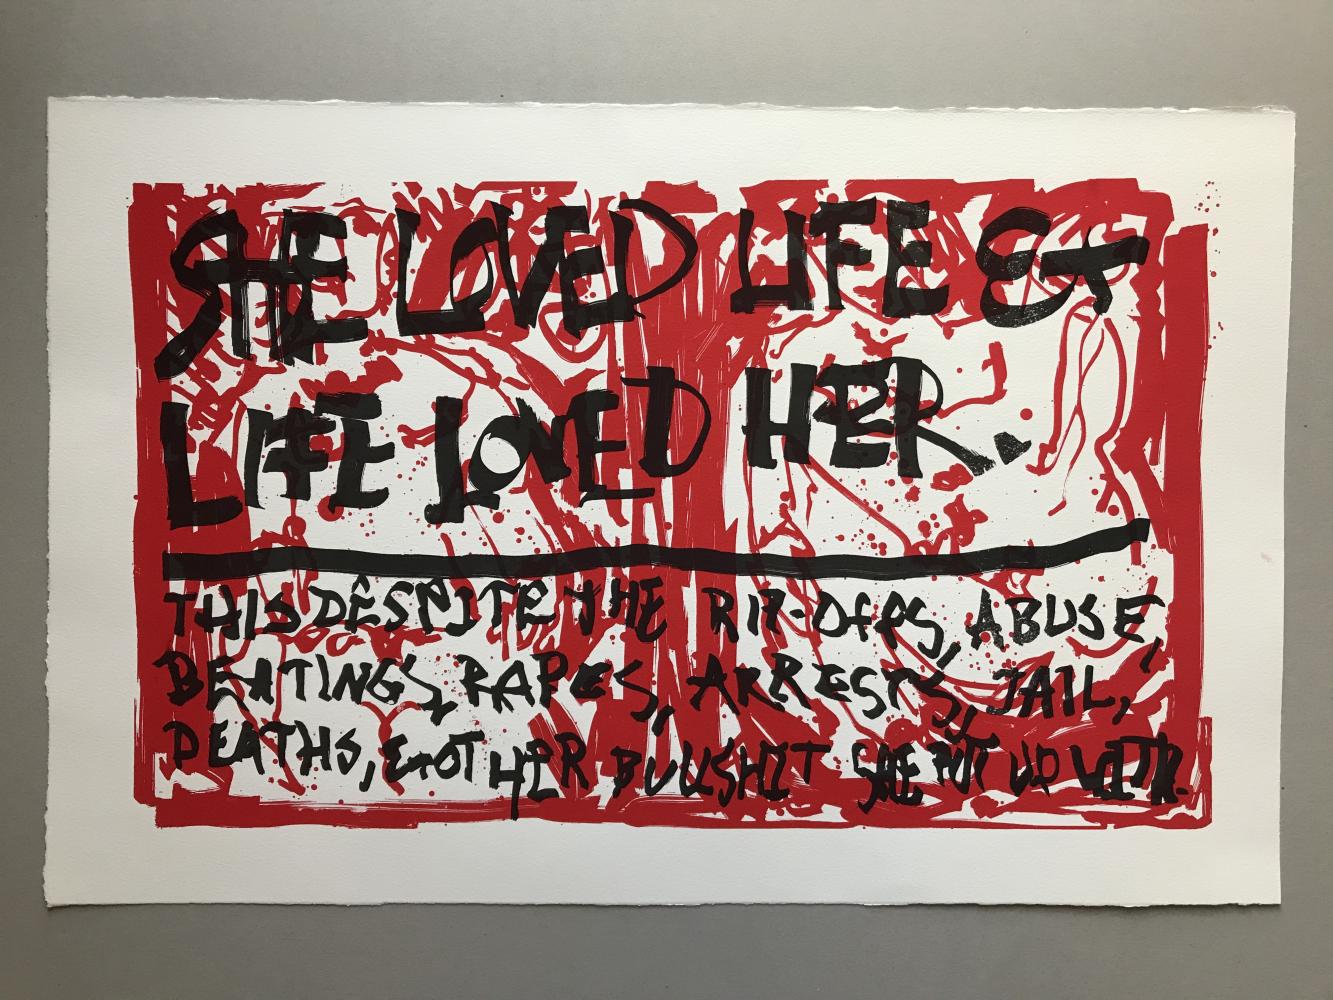 SHE LOVED LIFE &
LIFE LOVED HER.
THIS DESPITE THE RIP-OFFS, ABUSE,
BEATINGS, RAPES, ARRESTS, JAIL,
DEATHS, & OTHER BULLSHIT SHE PUT UP WITH.